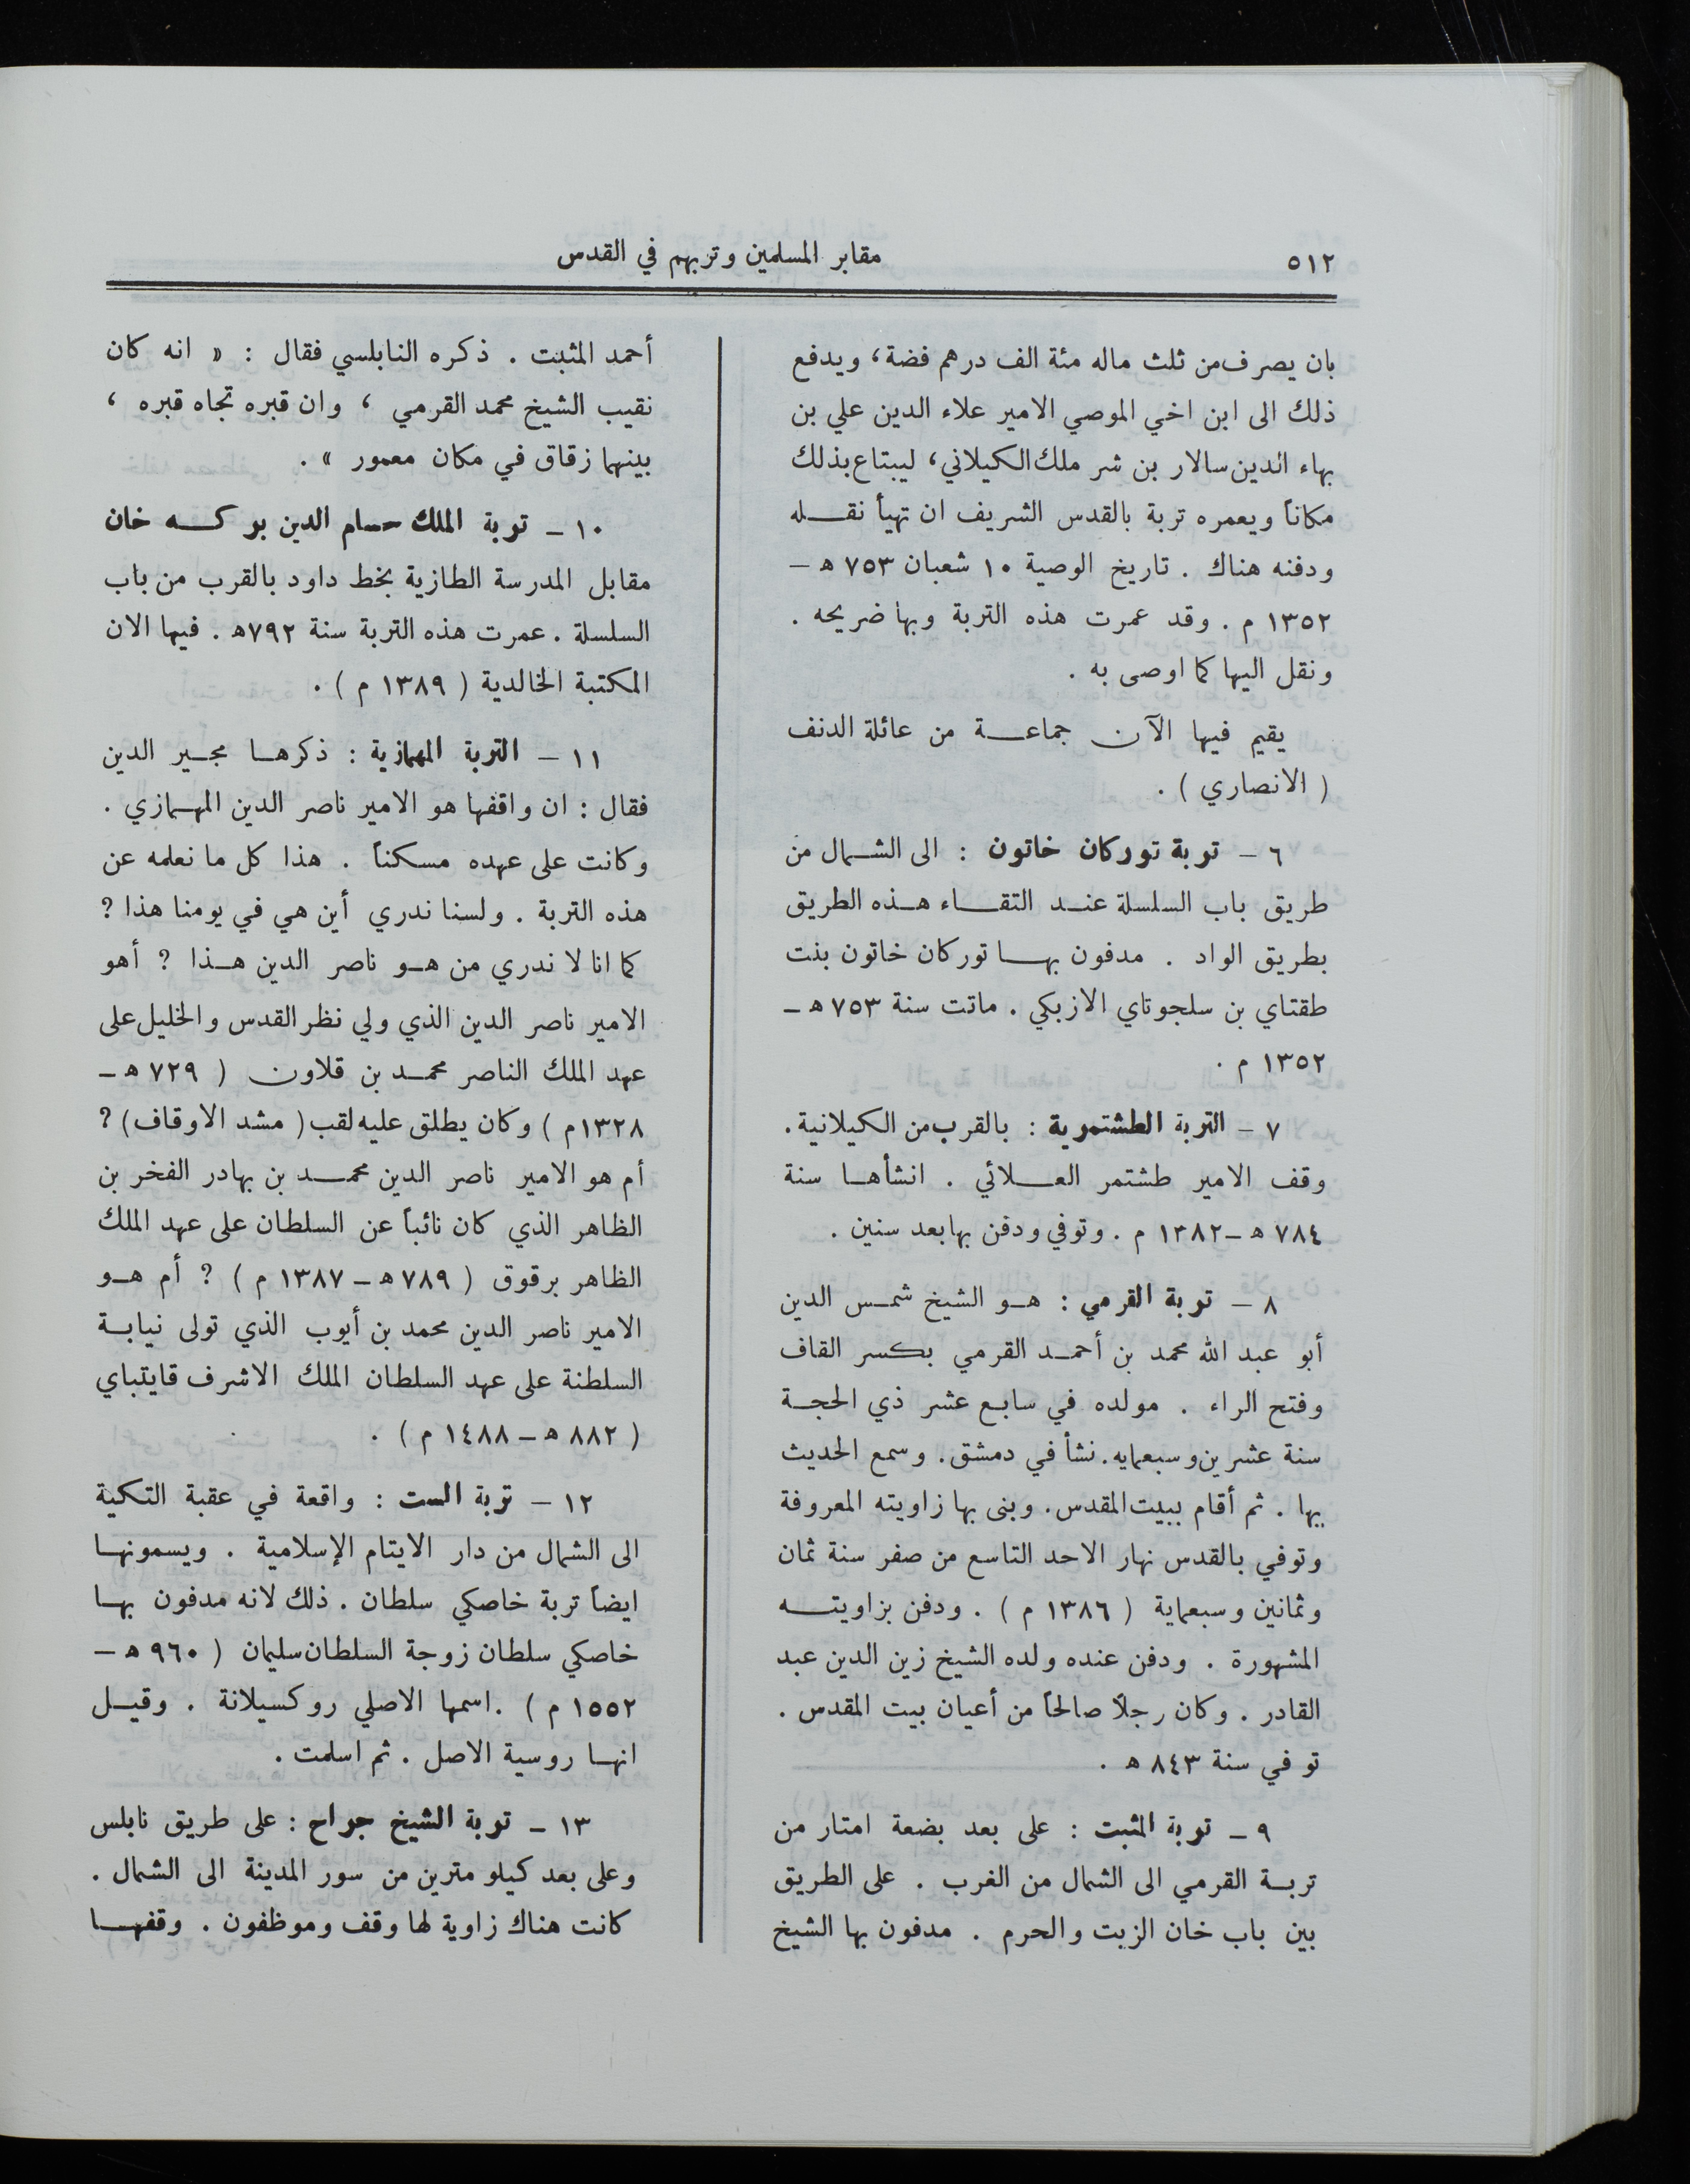 ٥١٢
مقابر المسلمين وتربهم في القدس
بان يصرف من ثلث ماله مئة الف درهم فضة، ويدفع
ذلك الى ابن اخي الموصي الامير علاء الدين علي بن
بهاء الدين سالار بن شر ملك الكيلاني، ليبتاع بذلك
مكاناً ويعمره تربة بالقدس الشريف ان تهيأ نقله
ودفنه هناك . تاريخ الوصية ١٠ شعبان ٧٥٣ ه –
١٣٥٢ م . وقد عمرت هذه التربة وبها ضريحه .
ونقل اليها كما اوصى به .
يقيم فيها الآن جماعة من عائلة الدنف
( الانصاري ) .
٦ – تربة توركان خاتون : الى الشمال من
طريق باب السلسلة عند التقاء هذه الطريق
بطريق الواد . مدفون بها توركان خاتون بنت
طقتاي بن سلجوتاي الازبكي . ماتت سنة ٧٥٣ ه –
١٣٥٢ م .
٧ – التربة الطشتمرية : بالقرب من الكيلانية .
وقف الامير طشتمر العلائي . انشأها سنة
٧٨٤ ه – ١٣٨٢ م . وتوفي ودفن بها بعد سنين .
٨ – تربة القرمي : هو الشيخ شمس الدين
أبو عبد الله محمد بن أحمد القرمي بكسر القاف
وفتح الراء . مولده في سابع عشر ذي الحجة
سنة عشرين وسبعمايه . نشأ في دمشق . وسمع الحديث
بها . ثم أقام ببيت المقدس . وبنى بها زاويته المعروفة
وتوفي بالقدس نهار الاحد التاسع من صفر سنة ثمان
وثمانين وسبعماية ( ١٣٨٦ م ) . ودفن بزاويته
المشهورة . ودفن عنده ولده الشيخ زين الدين عبد
القادر . وكان رجلاً صالحاً من أعيان بيت المقدس .
توفي سنة ٨٤٣ ه .
٩ – تربة المثبت : على بعد بضعة امتار من
تربة القرمي الى الشمال من الغرب . على الطريق
بين باب خان الزيت والحرم . مدفون بها الشيخ
أحمد المثبت . ذكره النابلسي فقال : « انه كان
نقيب الشيخ محمد القرمي ، وان قبره تجاه قبره ،
بينهما زقاق في مكان معمور » .
١٠ – تربة الملك حسام الدين بركه خان
مقابل المدرسة الطازية بخط داود بالقرب من باب
السلسلة . عمرت هذه التربة سنة ٧٩٢ه . فيها الان
المكتبة الخالدية ( ١٣٨٩ م ) .
١١ – التربة المهمازية : ذكرها مجير الدين
فقال : ان واقفها هو الامير ناصر الدين المهمازي .
وكانت على عهده مسكناً . هذا كل ما نعلمه عن
هذه التربة . ولسنا ندري أين هي في يومنا هذا ؟
كما انا لا ندري من هو ناصر الدين هذا ؟ أهو
الامير ناصر الدين الذي ولي نظر القدس والخليل على
عهد الملك الناصر محمد بن قلاون ( ٧٢٩ ه –
١٣٢٨م ) وكان يطلق عليه لقب ( مشد الاوقاف ) ؟
أم هو الامير ناصر الدين محمد بن بهادر الفخر بن
الظاهر الذي كان نائباً عن السلطان على عهد الملك
الظاهر برقوق ( ٧٨٩ ه – ١٣٨٧ م ) ؟ أم هو
الامير ناصر الدين محمد بن أيوب الذي تولى نيابة
السلطنة على عهد السلطان الملك الاشرف قايتباي
( ٨٨٢ ه – ١٤٨٨ م ) .
١٢ – تربة الست : واقعة في عقبة التكية
الى الشمال من دار الايتام الإسلامية . ويسمونها
ايضاً تربة خاصكي سلطان . ذلك لانه مدفون بها
خاصكي سلطان زوجة السلطان سليمان ( ٩٦٠ ه –
١٥٥٢ م ) . اسمها الاصلي روكسيلانة . وقيل
انها روسية الاصل . ثم اسلمت .
١٣ – تربة الشيخ جراح : على طريق نابلس
وعلى بعد كيلو مترين من سور المدينة الى الشمال .
كانت هناك زاوية لها وقف وموظفون . وقفها